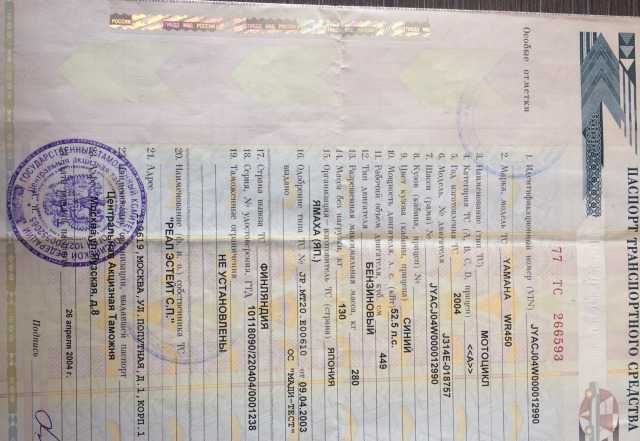 ПАСПОРТ ТРАНСПОРТНОГО СРЕДСТВА
77 ТС 266593
1. Идентификационный номер (VIN) JYACJ04W000012990
2. Марка, модель ТС YAMAHA WR450
3. Наименование (тип ТС) МОТОЦИКЛ
4. Категория ТС (А, В, С, D, прицеп) <<А>>
5. Год изготовления ТС 2004
6. Модель, № двигателя J314E-018757
7. Шасси (рама) № JYACJ04W000012990
8. Кузов (кабина, прицеп) №
9. Цвет кузова (кабины, прицепа) СИНИЙ
10. Мощность двигателя, л. с. (кВт) 52.5 л.с.
11. Рабочий объем двигателя, куб. см 449
12. Тип двигателя БЕНЗИНОВЫЙ
13. Разрешенная максимальная масса, кг 280
14. Масса без нагрузки, кг 130
15. Организация - изготовитель ТС (страна) ЯПОНИЯ
ЯМАХА (ЯП.)
16. Одобрение типа ТС № JP.MT20.E00610 от 09.04.2003
выдано ОС "МАДИ-ТЕСТ"
17. Страна вывоза ТС ФИНЛЯНДИЯ
18. Серия, № удостоверения, ГТД 10118090/220404/0001238
19. Таможенные ограничения НЕ УСТАНОВЛЕНЫ
20. Наименование (ф. и. о.) собственника ТС
"РЕАЛ ЭСТЕЙТ С.П."
21. Адрес
119619, МОСКВА, УЛ. ПОПУТНАЯ, Д.1, КОРП.1
Наименование организации, выдавшей паспорт
Центральная Акцизная Таможня
д.8
26 апреля 2004 г.
Подпись
Особые отметки
РОССИЯ